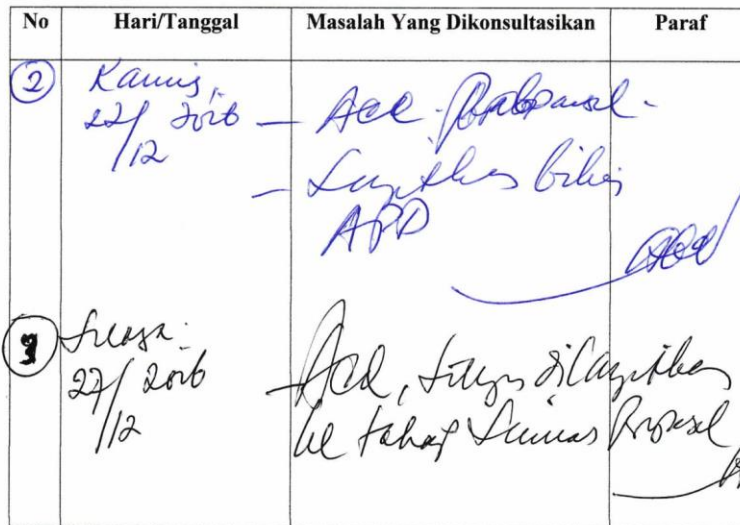 No Hari/Tanggal Masalah Yang Dikonsultasikan Paraf
2 Kamis,
22/12 2016 - Acc Proposal -
- Lanjutkan bikin
APD
3 Selasa.
27/12 2016 - Acc, dilanjutkan
ke tahap Seminar Proposal